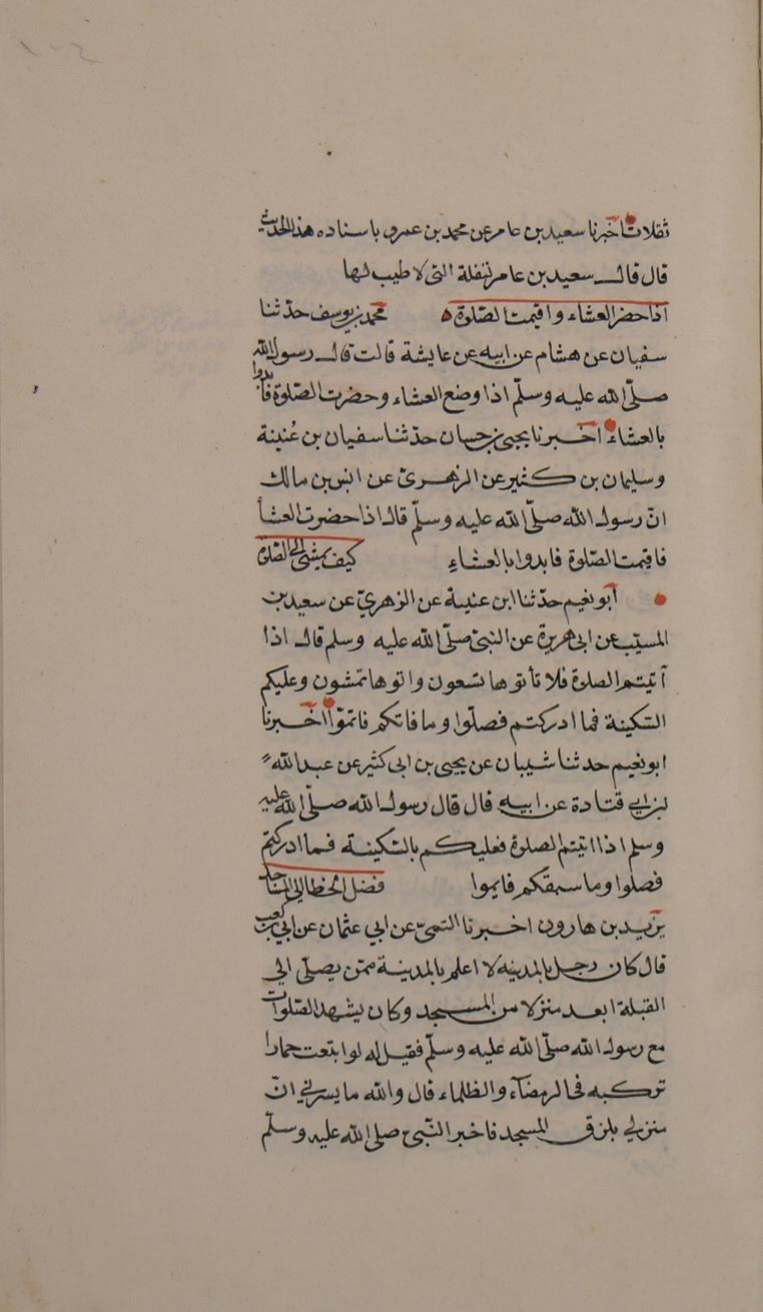 ثقلات اخبرنا سعيد بن عامر عن محمد بن عمرو باسناده هذا الحديث
قال قال سعيد بن عامر تنفلة التى لا طيب لها
اذا حضر العشاء واقيمت الصّلوة محمد بن يوسف حدّثنا
سفيان عن هشام عن ابيه عن عايشة قالت قال رسول الله
صلّى الله عليه وسلّم اذا وضع العشاء وحضرت الصّلوة فابدوا
بالعشاء اخبرنا يحيى بن حسان حدّثنا سفيان بن عُنينة
وسليمان بن كثير عن الزهرىّ عن انس بن مالك
انّ رسول الله صلّى الله عليه وسلّم قال اذا حضرت العشأ
فاقيمت الصّلوة فابدوا بالعشاءِ كيف يمشى الى الصّلوة
أبو نعيم حدّثنا ابن عنيبة عن الزهريّ عن سعيد بن
المسيّب عن ابى هريرة عن النبىّ صلّى الله عليه وسلم قال اذا
آتيتم الصلوة فلا تأتوها تسعون واتوها تمشون وعليكم
السّكينة فما ادركتم فصلّوا وما فاتكم فاتمّوا اخبرنا
ابو نعيم حدثنا شيبان عن يحيى بن ابى كثير عن عبد الله
بن ابي قتادة عن ابيه قال قال رسول الله صلّى الله عليه
وسلم اذا اتيتم الصلوة فعليكم بالسّكينة فما ادركتم
فصلوا وما سبقكم فايموا فضل الخطا الى المساجد
يزيد بن هارون اخبرنا التيمىّ عن ابي عثمان عن ابي بن كعب
قال كان رجل بالمدينه لا اعلم بالمدينة ممّن يصلّى الي
القبلة ابعد منزلا من المسجد وكان يشهد الصّلوات
مع رسول الله صلّى الله عليه وسلّم فقيل له لو ابتعت حمارا
تركبه فى الرمضآء والظلماء قال والله ما يسرني انّ
منزلي بلزق المسجد فاخبر النّبىّ صلى الله عليه وسلّم